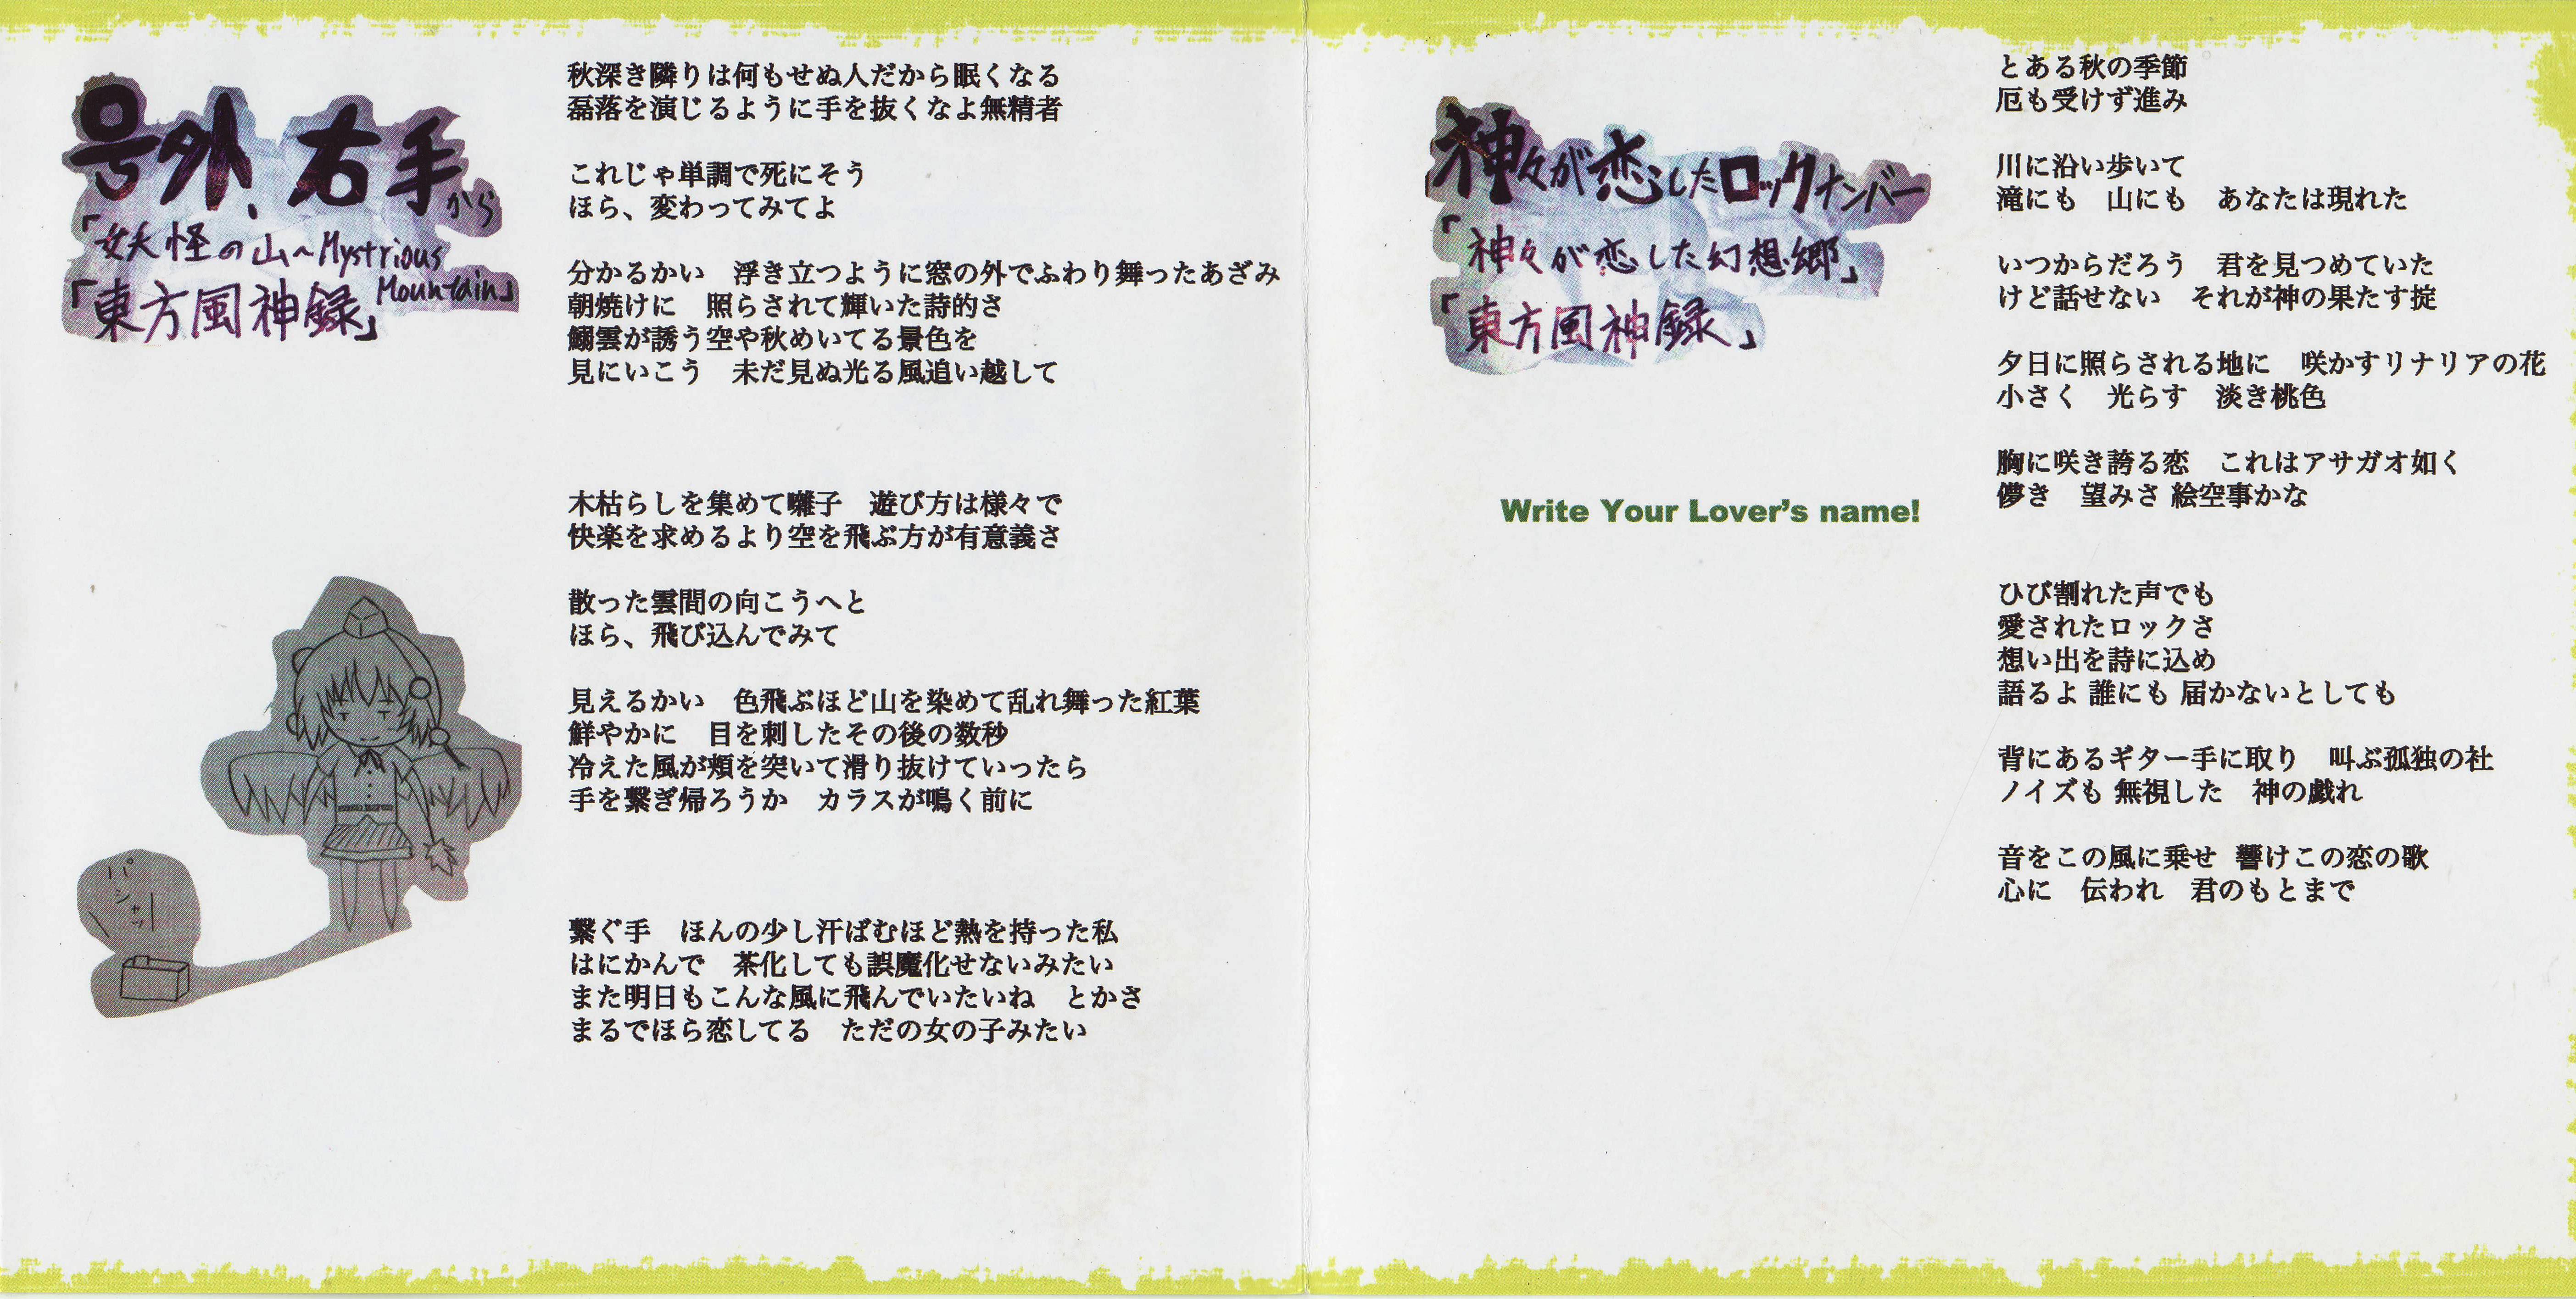 号外、右手から
「妖怪の山~Mystrious Mountain」
「東方風神録」
秋深き隣りは何もせぬ人だから眠くなる
磊落を演じるように手を抜くなよ無精者
これじゃ単調で死にそう
ほら、変わってみてよ
分かるかい　浮き立つように窓の外でふわり舞ったあざみ
朝焼けに　照らされて輝いた詩的さ
鰯雲が誘う空や秋めいてる景色を
見にいこう　未だ見ぬ光る風追い越して
木枯らしを集めて囃子　遊び方は様々で
快楽を求めるより空を飛ぶ方が有意義さ
散った雲間の向こうへと
ほら、飛び込んでみて
見えるかい　色飛ぶほど山を染めて乱れ舞った紅葉
鮮やかに　目を刺したその後の数秒
冷えた風が頬を突いて滑り抜けていったら
手を繋ぎ帰ろうか　カラスが鳴く前に
繋ぐ手　ほんの少し汗ばむほど熱を持った私
はにかんで　茶化しても誤魔化せないみたい
また明日もこんな風に飛んでいたいね　とかさ
まるでほら恋してる　ただの女の子みたい
パシャッ
神々が恋したロックナンバー
「神々が恋した幻想郷」
「東方風神録」
Write Your Lover's name!
とある秋の季節
厄も受けず進み
川に沿い歩いて
滝にも　山にも　あなたは現れた
いつからだろう　君を見つめていた
けど話せない　それが神の果たす掟
夕日に照らされる地に　咲かすリナリアの花
小さく　光らす　淡き桃色
胸に咲き誇る恋　これはアサガオ如く
儚き　望みさ 絵空事かな
ひび割れた声でも
愛されたロックさ
想い出を詩に込め
語るよ 誰にも 届かないとしても
背にあるギター手に取り　叫ぶ孤独の社
ノイズも 無視した　神の戯れ
音をこの風に乗せ　響けこの恋の歌
心に　伝われ　君のもとまで